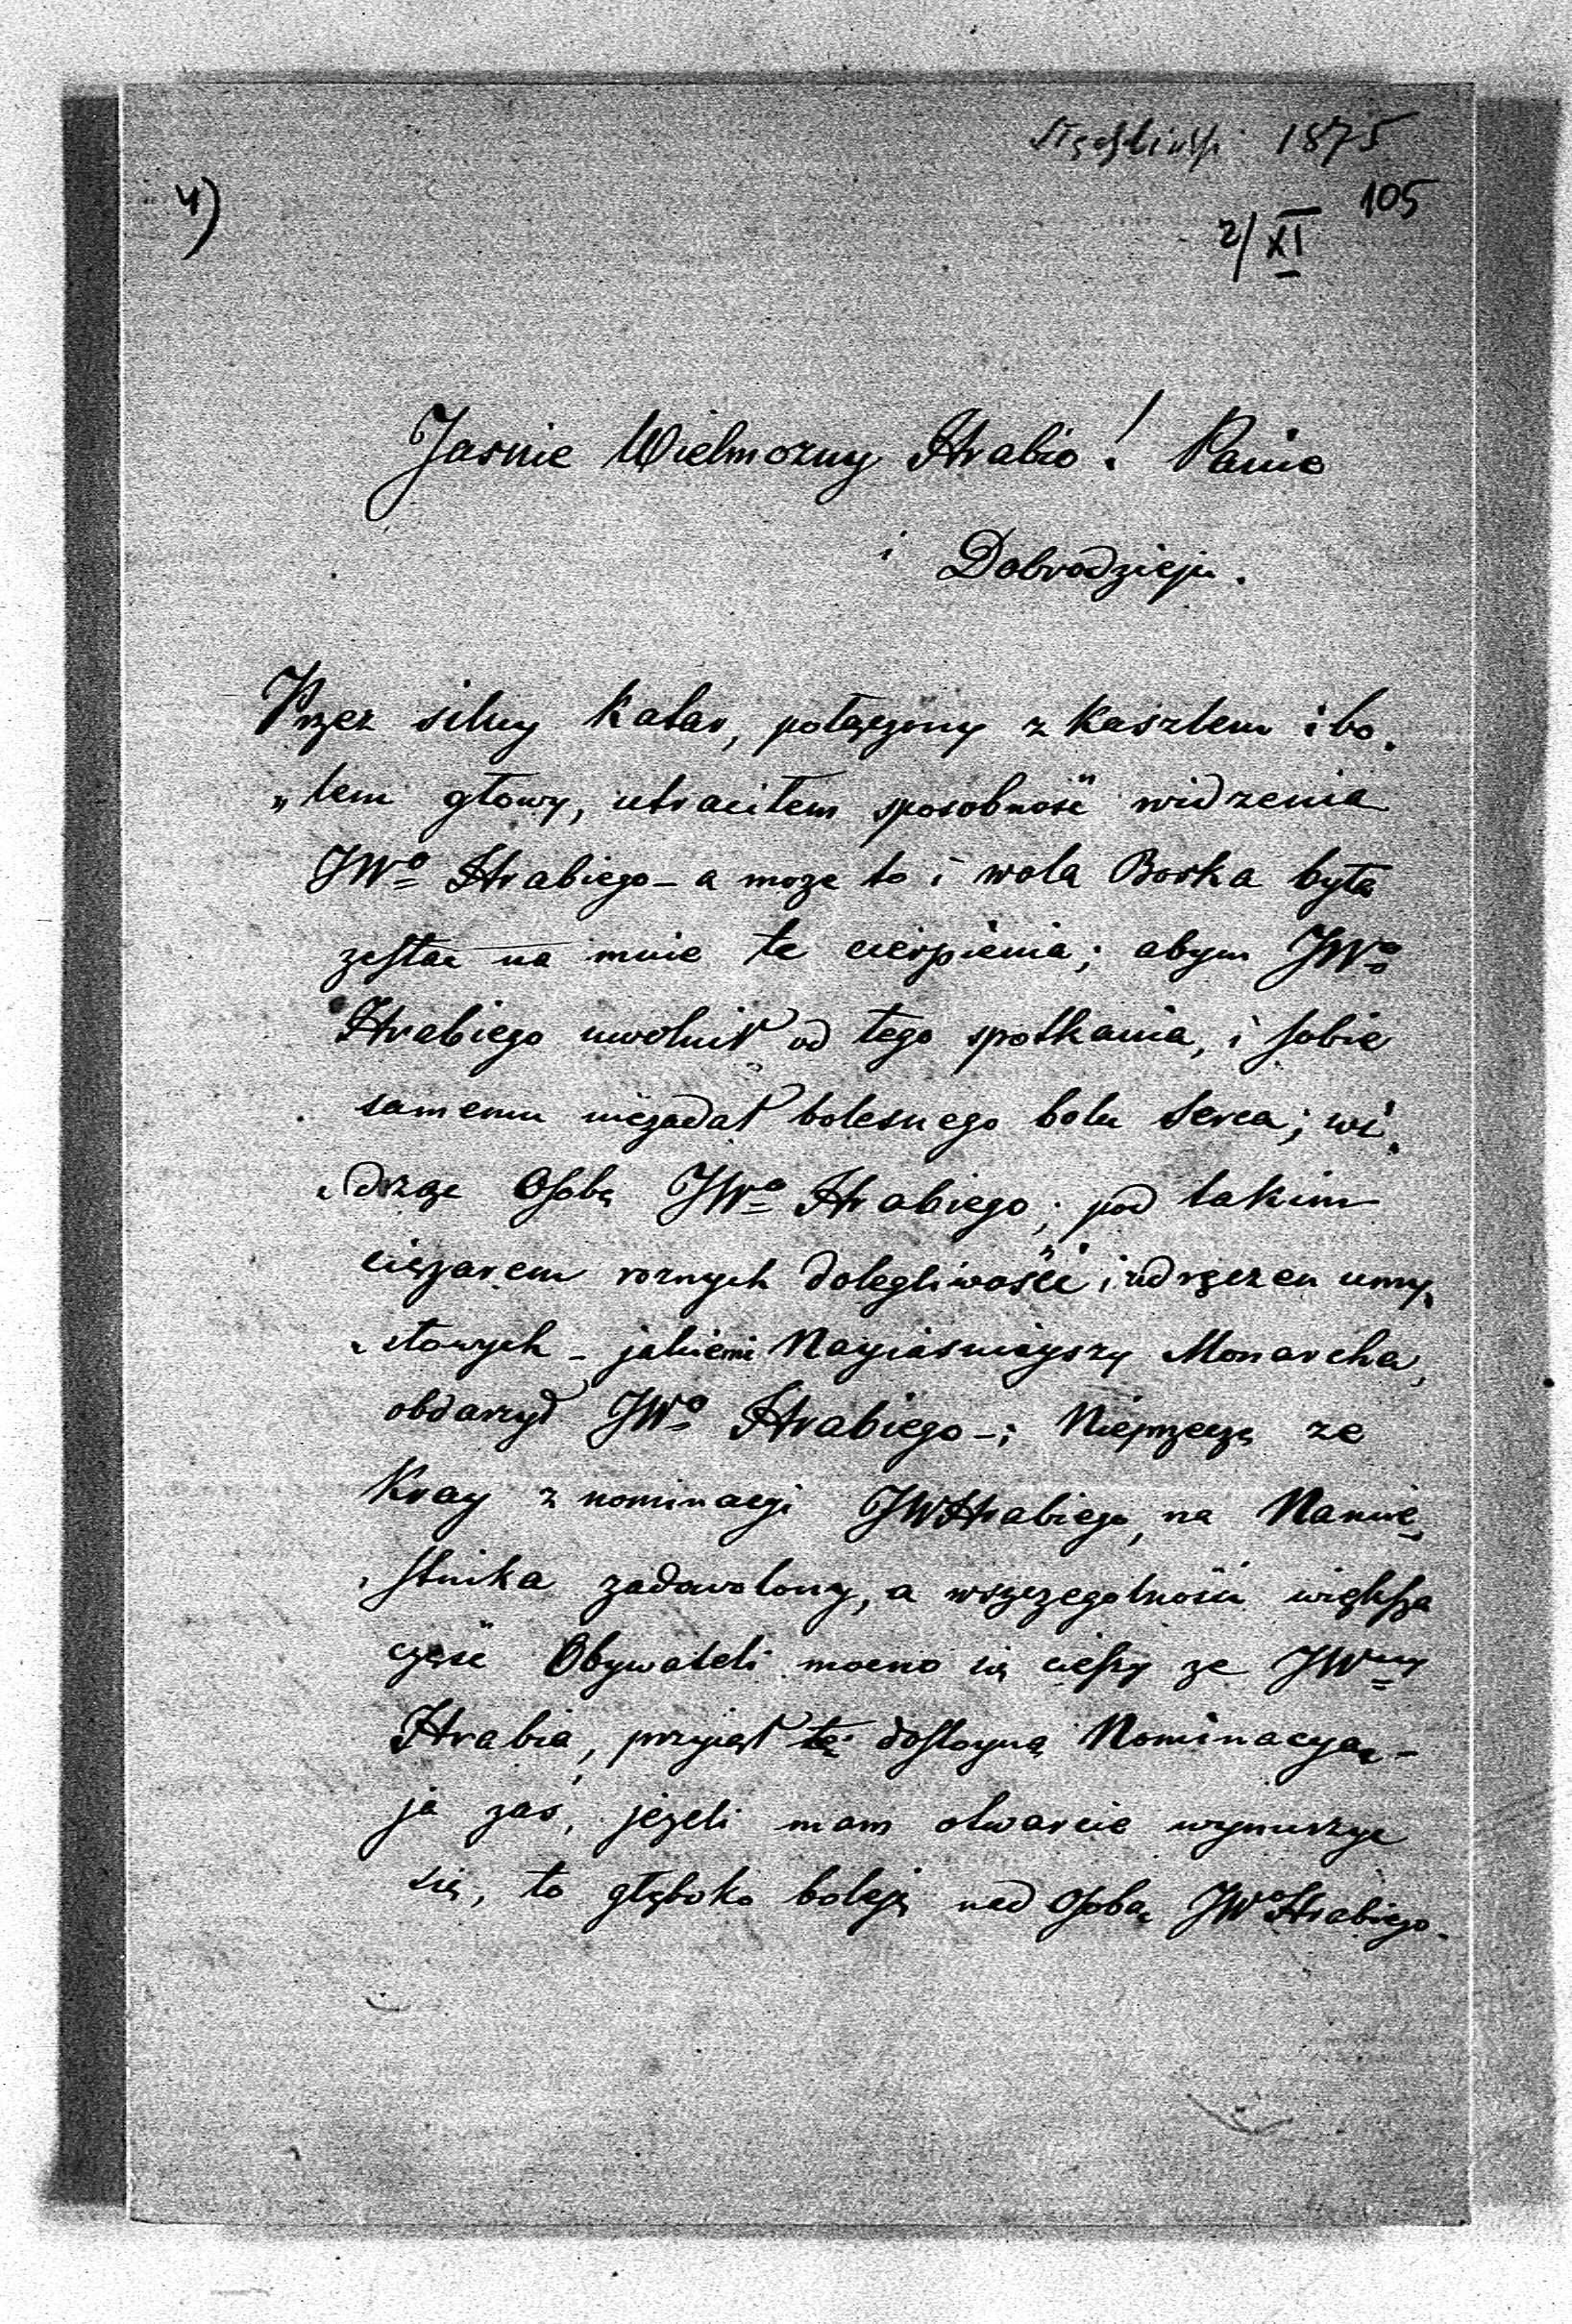 1875
4)
105
2/XI
Jasnie Wielmozny Hrabio! Panie
i Dobrodzieju.
Przez silny Katar, połączony z Kaszlem i bo„
„lem głowy, utraciłem sposobność widzenia
JWo Hrabiego – a moze to i wola Boska była
zesłać na mnie te cierpienia; abym JWo
Hrabiego uwolnił od tego spotkania, i sobie
samemu niezadał bolesnego bolu serca; wi„
„dząc Osobę JWo Hrabiego; pod takim
ciężarem roznych dolegliwości i udręczen umy„
„słowych – jakiemi Nayiasnieyszy Monarcha,
obdarzył JWo Hrabiego –; Nieprzeczę ze
Kray z nominacyi JWHrabiego, na Namie„
„stnika zadowolony, a wszczegolności większa
część Obywateli mocno się cieszy ze JWny
Hrabia, przyiął tę dostoyną Nominacyą –
ja zas, jeżeli mam otwarcie wynurzyc
się, to głęboko boleję nad Osobą JWo Hrabiego.